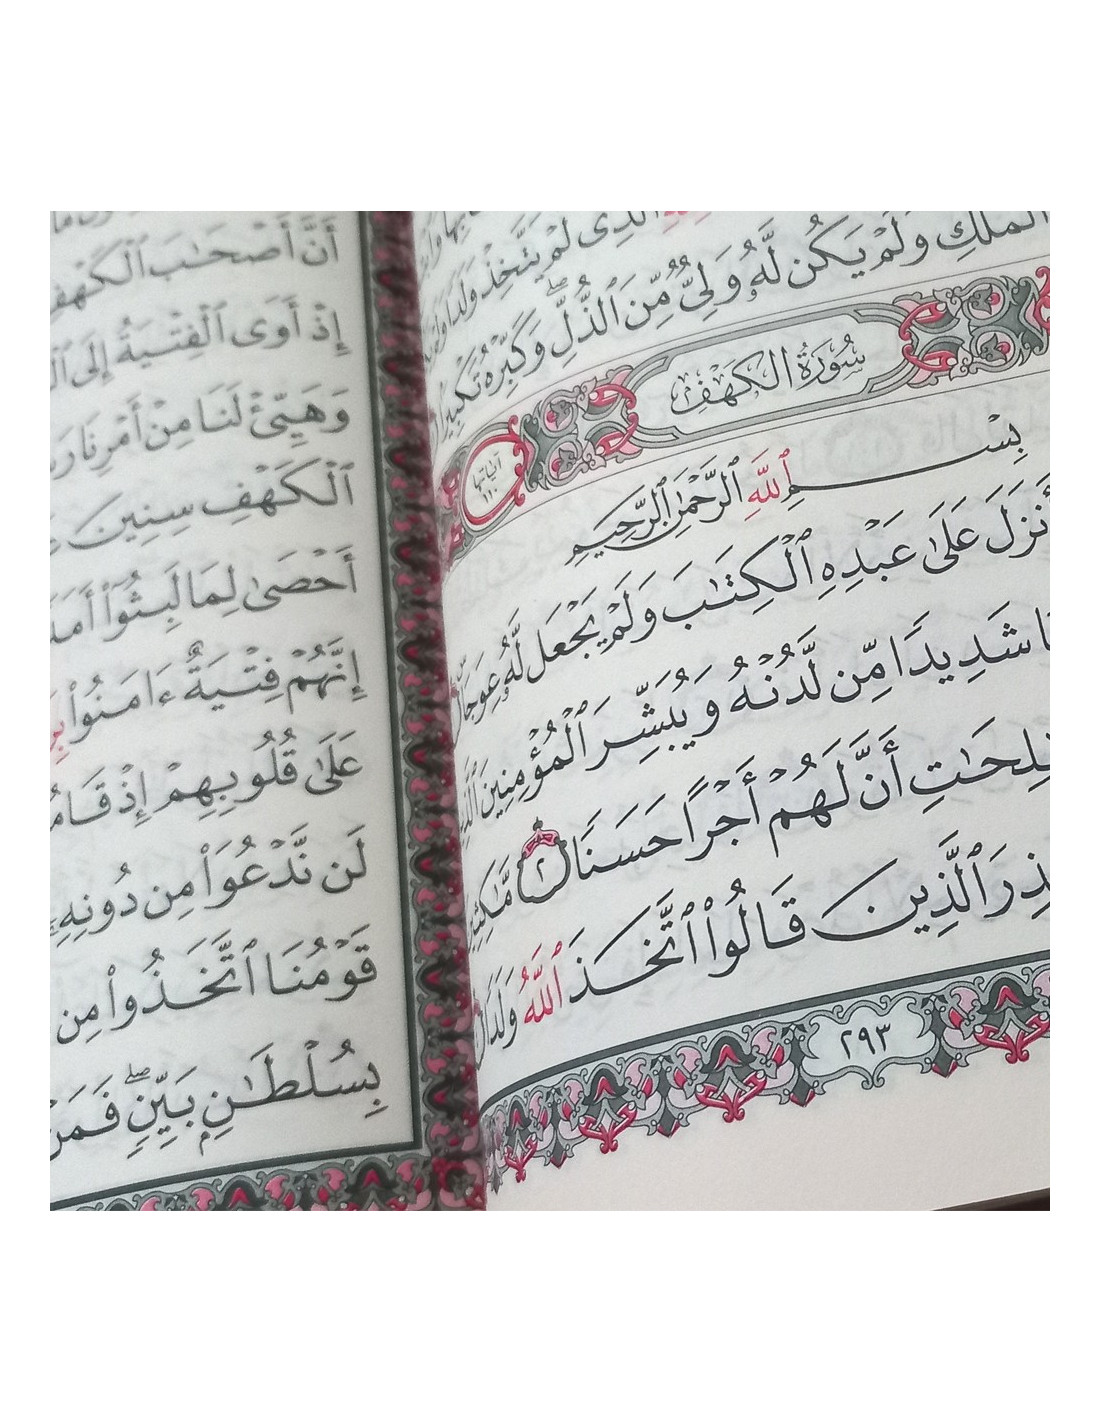 ٱلَّذِى لَمْ يَتَّخِذْ وَلَدًا
ٱلْمُلْكِ وَلَمْ يَكُن لَّهُۥ وَلِىٌّ مِّنَ ٱلذُّلِّۖ وَكَبِّرْهُ تَكْبِيرًا
سُورَةُ الكَهْفِ
آياتها
١١٠
بِسْمِ ٱللَّهِ ٱلرَّحْمَٰنِ ٱلرَّحِيمِ
أَنزَلَ عَلَىٰ عَبْدِهِ ٱلْكِتَٰبَ وَلَمْ يَجْعَل لَّهُۥ عِوَجَاۜ
شَدِيدًا مِّن لَّدُنْهُ وَيُبَشِّرَ ٱلْمُؤْمِنِينَ
أَنَّ لَهُمْ أَجْرًا حَسَنًا ٢ مَّٰكِثِينَ
ٱلَّذِينَ قَالُوا۟ ٱتَّخَذَ ٱللَّهُ وَلَدًا
٢٩٣
أَنَّ أَصْحَٰبَ ٱلْكَهْفِ
إِذْ أَوَى ٱلْفِتْيَةُ إِلَى
وَهَيِّئْ لَنَا مِنْ أَمْرِنَا
ٱلْكَهْفِ سِنِينَ
أَحْصَىٰ لِمَا لَبِثُوٓا۟
إِنَّهُمْ فِتْيَةٌ ءَامَنُوا۟
عَلَىٰ قُلُوبِهِمْ إِذْ
لَن نَّدْعُوَا۟ مِن دُونِهِۦٓ
قَوْمُنَا ٱتَّخَذُوا۟ مِن
بِسُلْطَٰنٍۭ بَيِّنٍۖ فَمَنْ